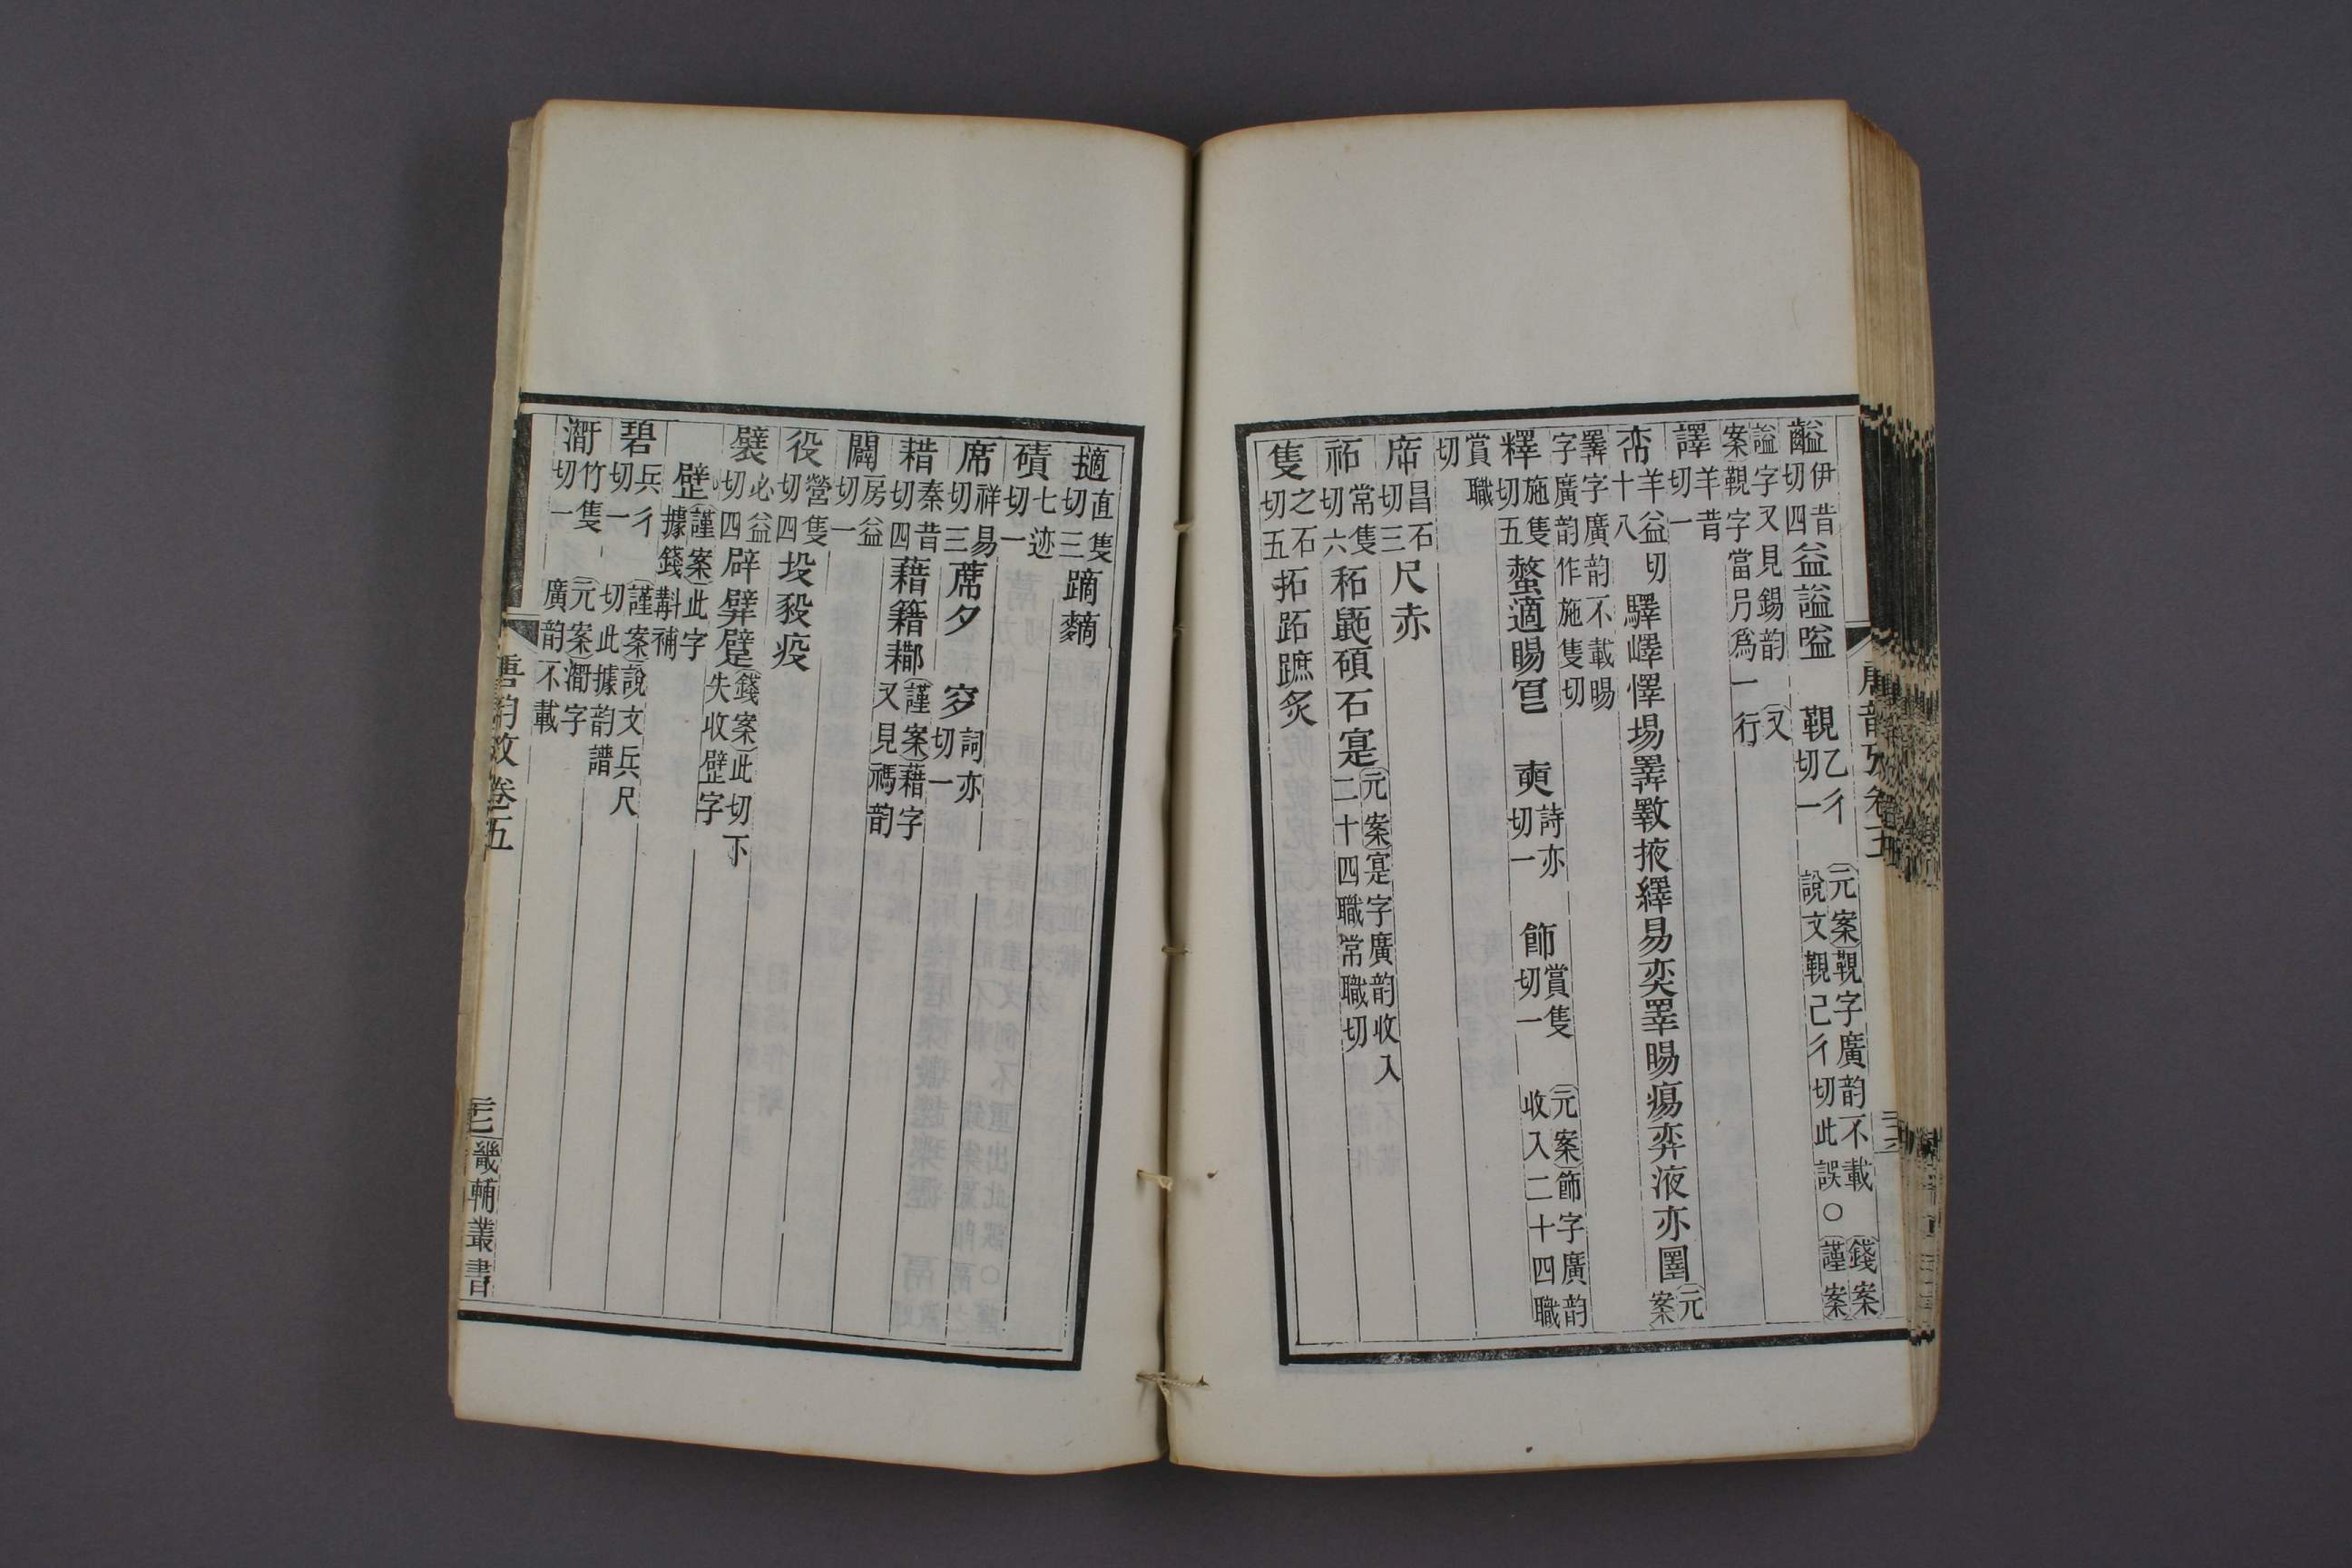 齸伊昔切四益謚嗌　覡乙彳切一　元案覡字廣韵不載　錢案說文覡己彳切此誤○謹案
謚字又見錫韵　又案覡字當另爲一行
譯羊昔切一
帟羊益切十八驛嶧懌場睪斁掖繹易奕睪晹瘍弈液亦圛元案
睪字廣韵不載晹字廣韵作施隻切
釋施隻切五螫適晹　奭詩亦切一　飾賞隻切一　元案飾字廣韵收入二十四職
賞職切
㡿昌石切三尺赤
祏常隻切六䄷鼫碩石寔元案寔字廣韵收入二十四職常職切
隻之石切五拓跖蹠炙
擿直隻切三蹢䵂
磧七迹切一
席祥易切三蓆夕　穸詞亦切一
耤秦昔切四藉籍謹案藉字又見禡韵
闢房益切一
役營隻切四垼豛疫
襞必益切四辟擘躄錢案此切下失收壁字
壁謹案此字據錢斠補
碧兵彳切一　謹案說文兵尺切此據韵譜
竹隻切一　元案字廣韵不載
唐韵攷卷五
畿輔叢書